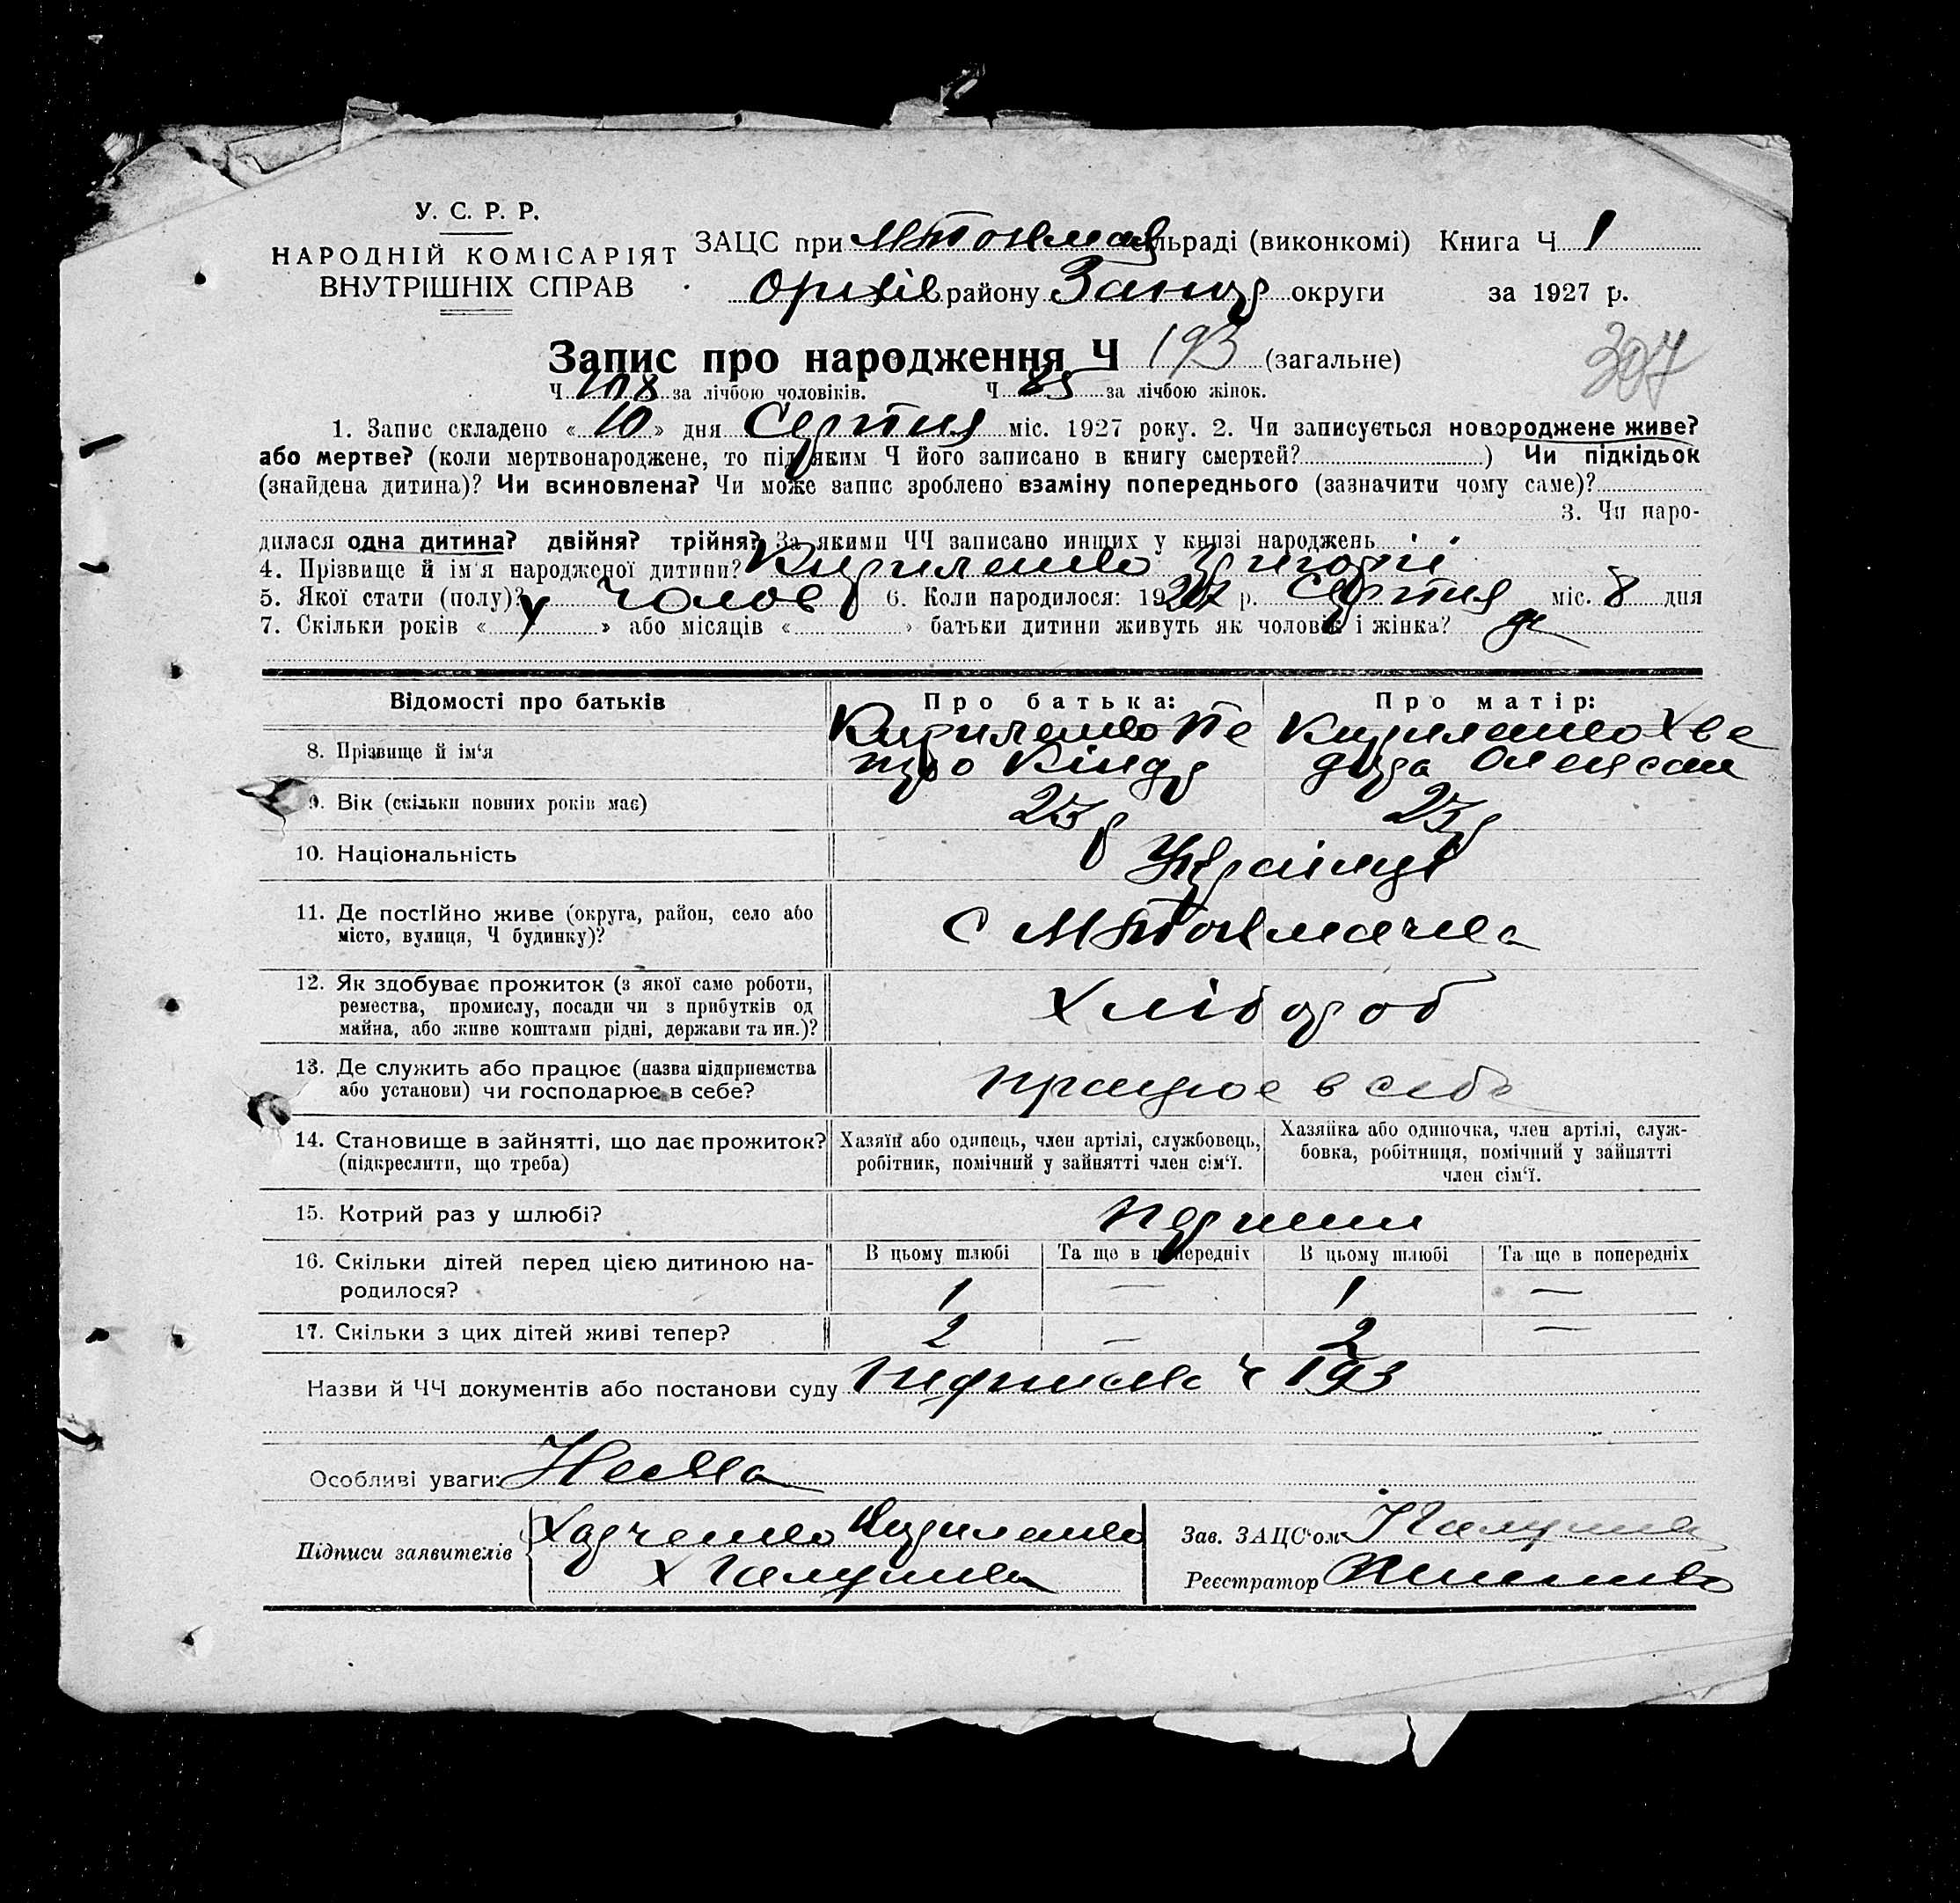 У. С. Р. Р.
НАРОДНІЙ КОМІСАРІЯТ
ВНУТРІШНІХ СПРАВ
ЗАЦС при МТокмац сільраді (виконкомі) Книга Ч 1
Оріхів району Запор округи за 1927 р.
Запис про народження Ч 193 (загальне)
307
Ч 108 за лічбою чоловіків. Ч 85 за лічбою жінок.
1. Запис складено « 10 » дня Серпня міс. 1927 року. 2. Чи записується новороджене живе?
або мертве? (коли мертвонароджене, то під яким Ч його записано в книгу смертей? ) Чи підкідьок
(знайдена дитина)? Чи всиновлена? Чи може запис зроблено взаміну попереднього (зазначити чому саме)?
3. Чи наро-
дилася одна дитина? двійня? трійня? За якими ЧЧ записано инших у книзі народжень
4. Прізвище й ім'я народженої дитини? Кириленко Григорій
5. Якої стати (полу)? чолов 6. Коли народилося: 1927 р. Серпня міс. 8 дня
7. Скільки років « у » або місяців « » батьки дитини живуть як чоловік і жінка?
Відомості про батьків Про батька: Про матір:
8. Прізвище й ім'я Кириленко Пе Кириленко Хве
тро Кіндр дора Олексан
9. Вік (скільки повних років має) 23 р 23 р
10. Національність Українці
11. Де постійно живе (округа, район, село або
місто, вулиця, Ч будинку)? С МТокмачка
12. Як здобуває прожиток (з якої саме роботи,
ремества, промислу, посади чи з прибутків од
майна, або живе коштами рідні, держави та ин.)? Хлібороб
13. Де служить або працює (назва підприємства
або установи) чи господарює в себе? працює в себе
14. Становище в зайнятті, що дає прожиток?
(підкреслити, що треба)
Хазяїн або одинець, член артілі, службовець,
робітник, помічний у зайнятті член сім'ї.
Хазяйка або одиночка, член артілі, служ-
бовка, робітниця, помічний у зайнятті
член сім'ї.
15. Котрий раз у шлюбі? перший
В цьому шлюбі Та ще в попередніх В цьому шлюбі Та ще в попередніх
16. Скільки дітей перед цією дитиною на-
родилося? 1 — 1 —
17. Скільки з цих дітей живі тепер? 2 — 2 —
Назви й ЧЧ документів або постанови суду ч 193
Особливі уваги: Нема
Підписи заявителів Харченко Кириленко
х Галушка
Зав. ЗАЦС'ом
Реєстратор